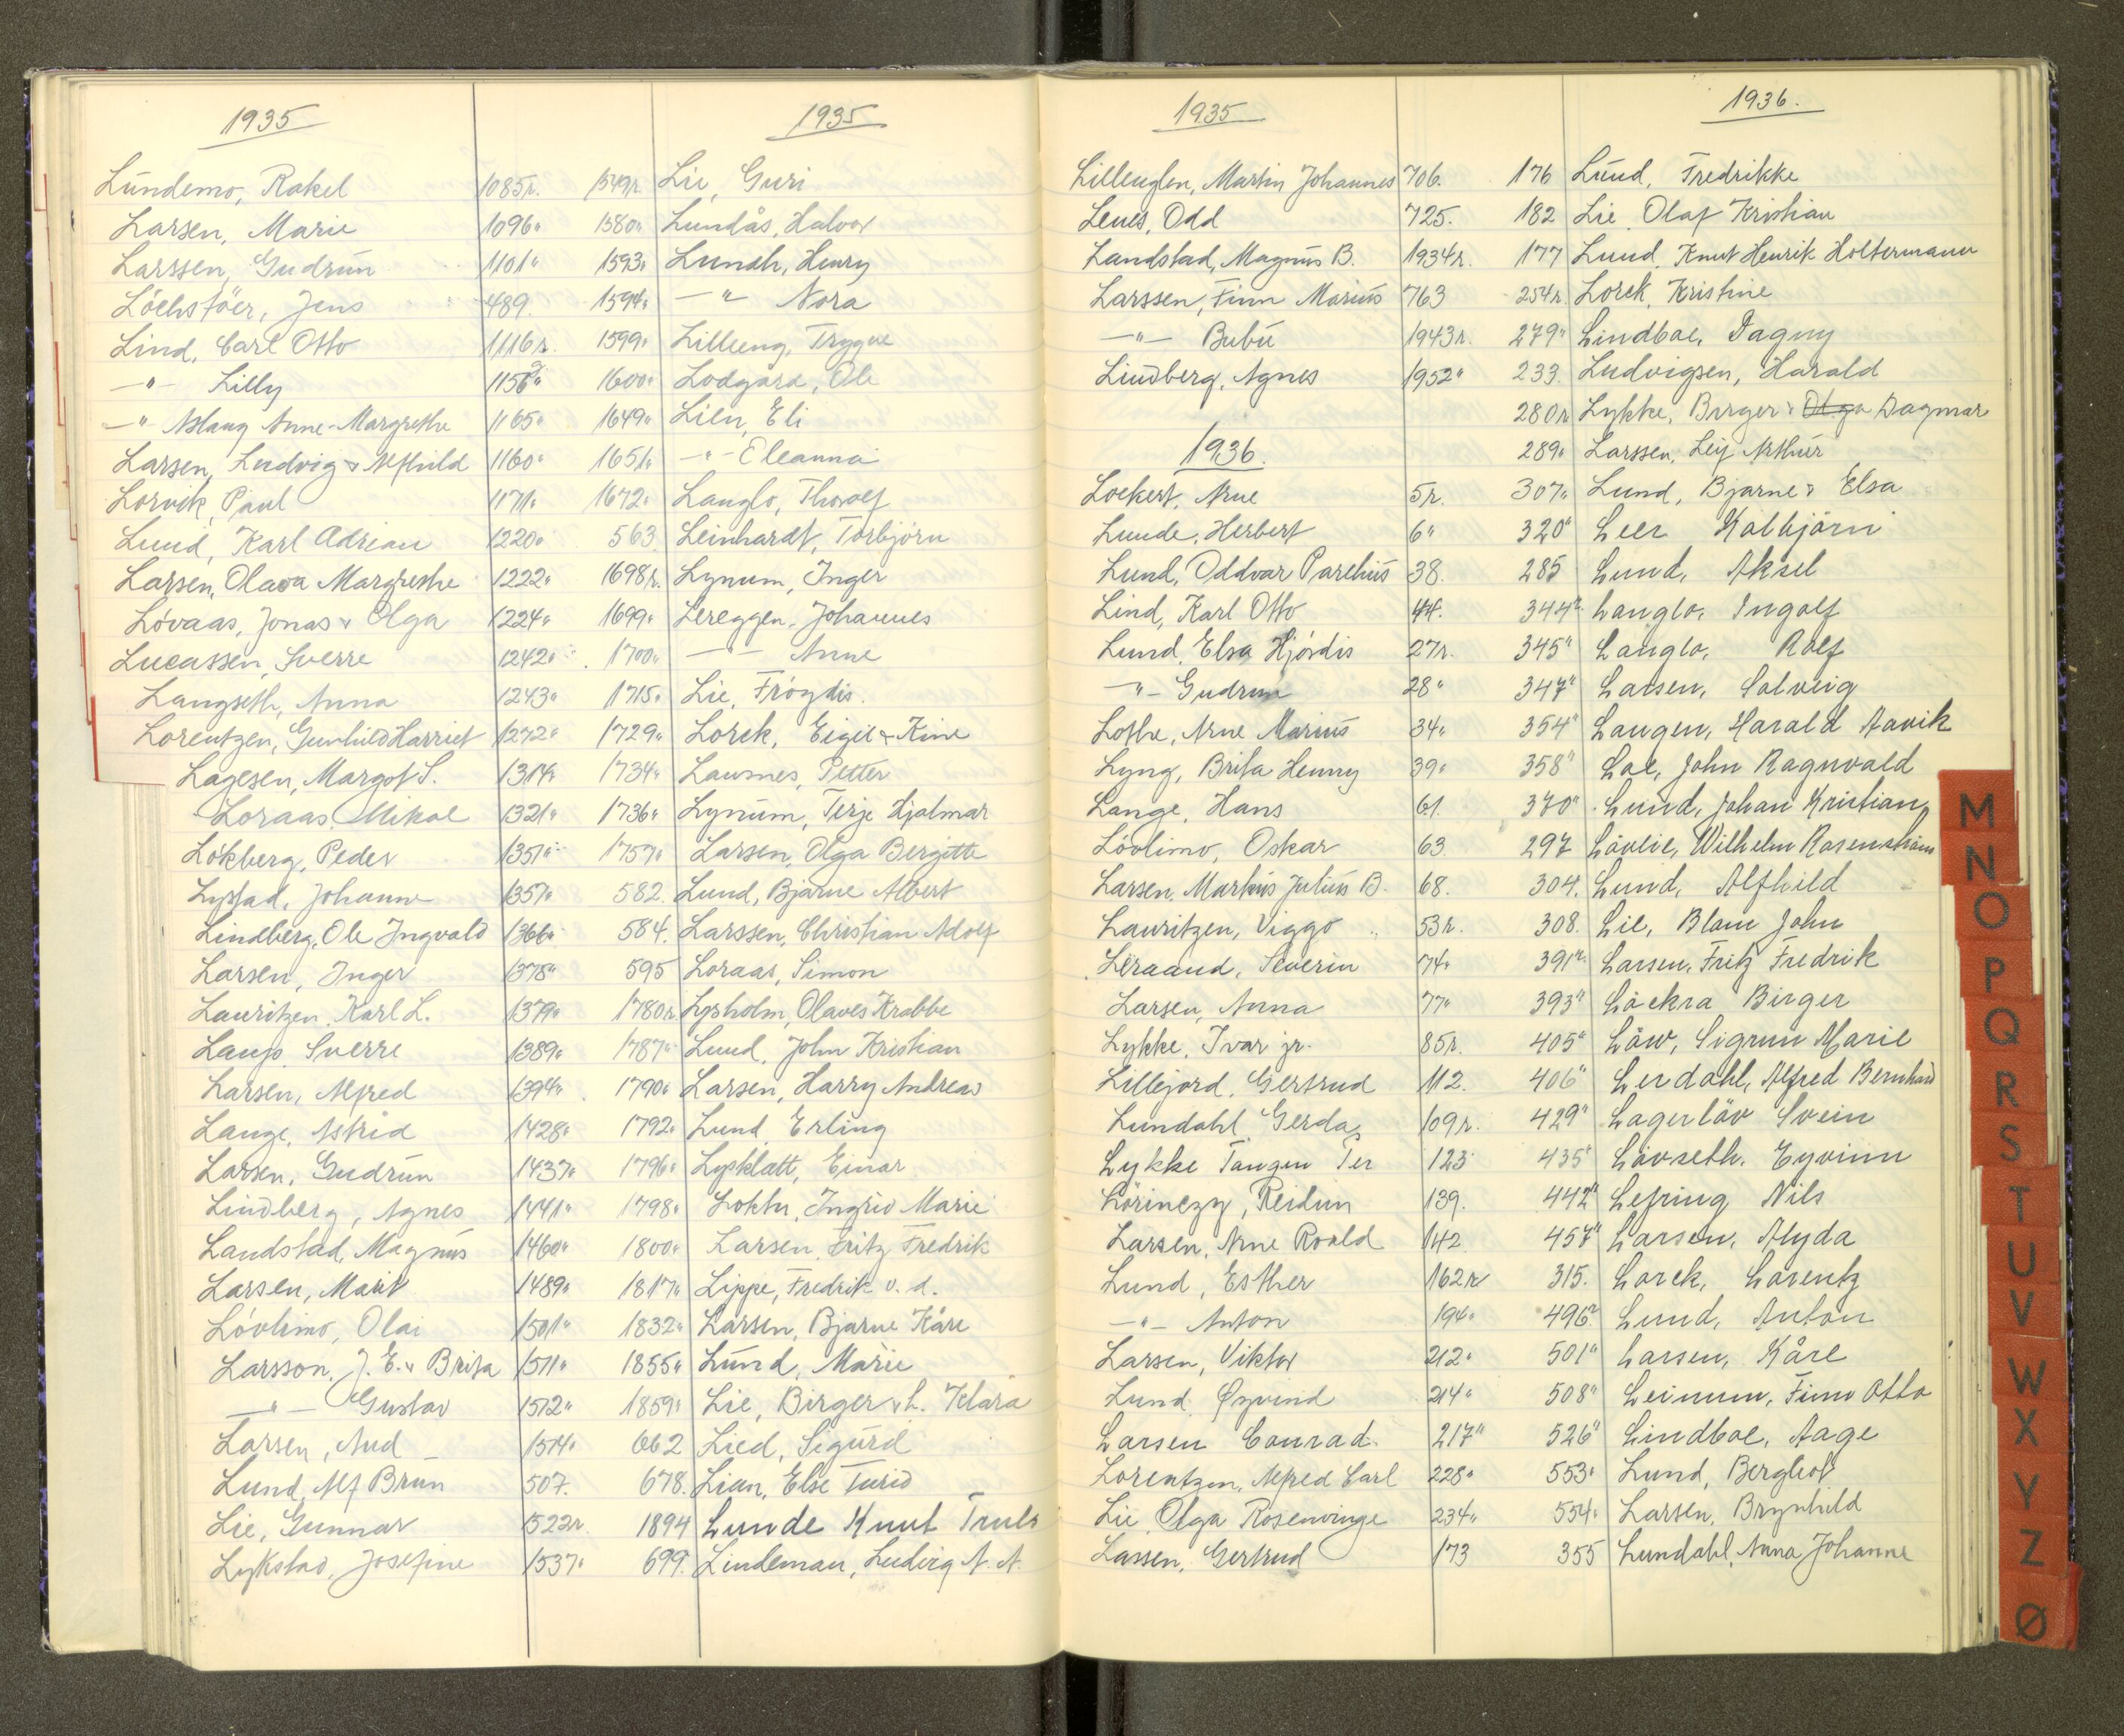 1935
Lundemo, Rakel 1085r.
Larsen, Marie 1096"
Larssen, Gudrun 1101"
Löchstöer, Jens 489.
Lind, Carl Otto 1116r.
—"— Lilly 1156"
—"— Aslaug Anne-Margrethe 1165"
Larsen, Ludvig & Alfhild 1160"
Lorvik, Paul 1171"
Lund, Karl Adrian 1220"
Larsen, Olava Margrethe 1222"
Lövaas, Jonas & Olga 1224"
Lucassen, Sverre 1242"
Langseth, Anna 1243"
Lorentzen, Gunhild Harriet 1272"
Lagesen, Margot S. 1314"
Loraas, Mikal 1321"
Lökberg, Peder 1351"
Lystad, Johanne 1357"
Lindberg, Ole Ingvald 1366"
Larsen, Inger 1378"
Lauritzen, Karl L. 1379"
Laups Sverre 1389"
Larsen, Alfred 1394"
Lange, Astrid 1428"
Larsen, Gudrun 1437"
Lindberg, Agnes 1441"
Landstad, Magnus 1460"
Larsen, Marit 1489"
Lövlimo, Olai 1501"
Larsson, J. E. & Brita 1511"
—"— Gustav 1512"
Larsen, Aud 1514"
Lund, Alf Brun 507.
Lie, Gunnar 1522r.
Lykstad, Josefine 1537"
1935
1549r. Lie, Guri
1580" Lundås, Halvor
1593" Lundh, Henry
1594" —"— Nora
1599" Lilleeng, Trygve
1600" Lodgård, Ole
1649" Lien, Eli
1651" —"— Eleanna
1672" Langlo, Thoralf
563. Leinhardt, Torbjörn
1698r. Lynum, Inger
1699" Lereggen, Johannes
1700" —"— Anne
1715" Lie, Fröydis.
1729" Lorck, Eigil & Kine
1734" Lausnes, Petter
1736" Lynum, Terje Hjalmar
1757" Larsen, Olga Bergitte
582. Lund, Bjarne Albert
584. Larssen, Christian Adolf
595 Loraas, Simon
1780r. Lysholm, Olaves Krabbe
1787" Lund, John Kristian
1790" Larsen, Harry Andreas
1792" Lund Erling
1796" Lysklætt, Einar
1798" Loktu, Ingrid Marie
1800" Larsen, Fritz Fredrik
1817" Lippe, Fredrik v. d.
1832" Larsen, Bjarne Kåre
1855" Lund, Marie
1859" Lie, Birger & h. Klara
662 Lied, Sigurd
678. Lian, Else Turid
1894 Lunde Knut Truls
699. Lindeman, Ludvig N. A.
1935
Lilleuglen, Martin Johannes 706.
Lenes, Odd 725.
Landstad, Magnus B. 1934r.
Larssen, Finn Marius 763
—"— Bubu 1943r.
Lindberg, Agnes 1952"
1936.
Lockert, Arne 5r.
Lunde, Herbert 6"
Lund, Oddvar Parelius 38.
Lind, Karl Otto 44.
Lund, Elsa Hjördis 27r.
—"— Gudrun 28"
Lothe, Arne Marius 34"
Lyng, Brita Henny 39"
Lange, Hans 61.
Lövlimo, Oskar 63.
Larsen, Markus Julius B. 68.
Lauritzen, Viggo 53r.
Leraand, Severin 74"
Larsen, Anna 77"
Lykke, Ivar jr. 85r.
Lillejord, Gertrud 112.
Lundahl, Gerda 109r.
Lykke Tangen Per 123
Lörinczy, Reidun 139.
Larsen, Arne Roald 142.
Lund, Esther 162r
—"— Anton 194"
Larsen, Viktor 212"
Lund, Øyvind 214"
Larsen Conrad. 217"
Lorentzen, Alfred Carl 228"
Lie, Olga Rosenvinge 234"
Lassen, Gertrud 173
1936.
176 Lund, Fredrikke
182 Lie, Olaf Kristian
177 Lund, Knut Henrik Holtermann
254r. Lorck, Kristine
279" Lindboe, Dagny
233. Ludvigsen, Harald
280r Lykke, Birger & Olga Dagmar
289" Larssen, Leif Arthur
307" Lund, Bjarne & Elsa
320" Leer Kolbjörn
285 Lund, Aksel
344r. Langlo, Ingolf
345" Langlo, Rolf
347" Larsen, Solveig
354" Laugen, Harald Aavik
358" Loe, John Ragnvald
370" Lund, Johan Kristian
297 Lövlie, Wilhelm
304. Lund, Alfhild
308. Lie, Blom John
391r. Larsen, Fritz Fredrik
393" Löckra Birger
405" Löw, Sigrun Marie
406" Lerdahl, Alfred Bernhard
429" Lagerlöv Svein
435" Lövseth, Eyvinn
442" Lefring Nils
457" Larsen, Alyda
315. Lorck, Lorentz
496r Lund, Anton
501" Larsen, Kåre
508" Leinum, Finn Otto
526" Lindboe, Aage
553" Lund, Bergliot
554" Larsen, Brynhild
355 Lundahl, Anna Johanne
M
N
O
P
Q
R
S
T
U
V
W
X
Y
Z
Ø